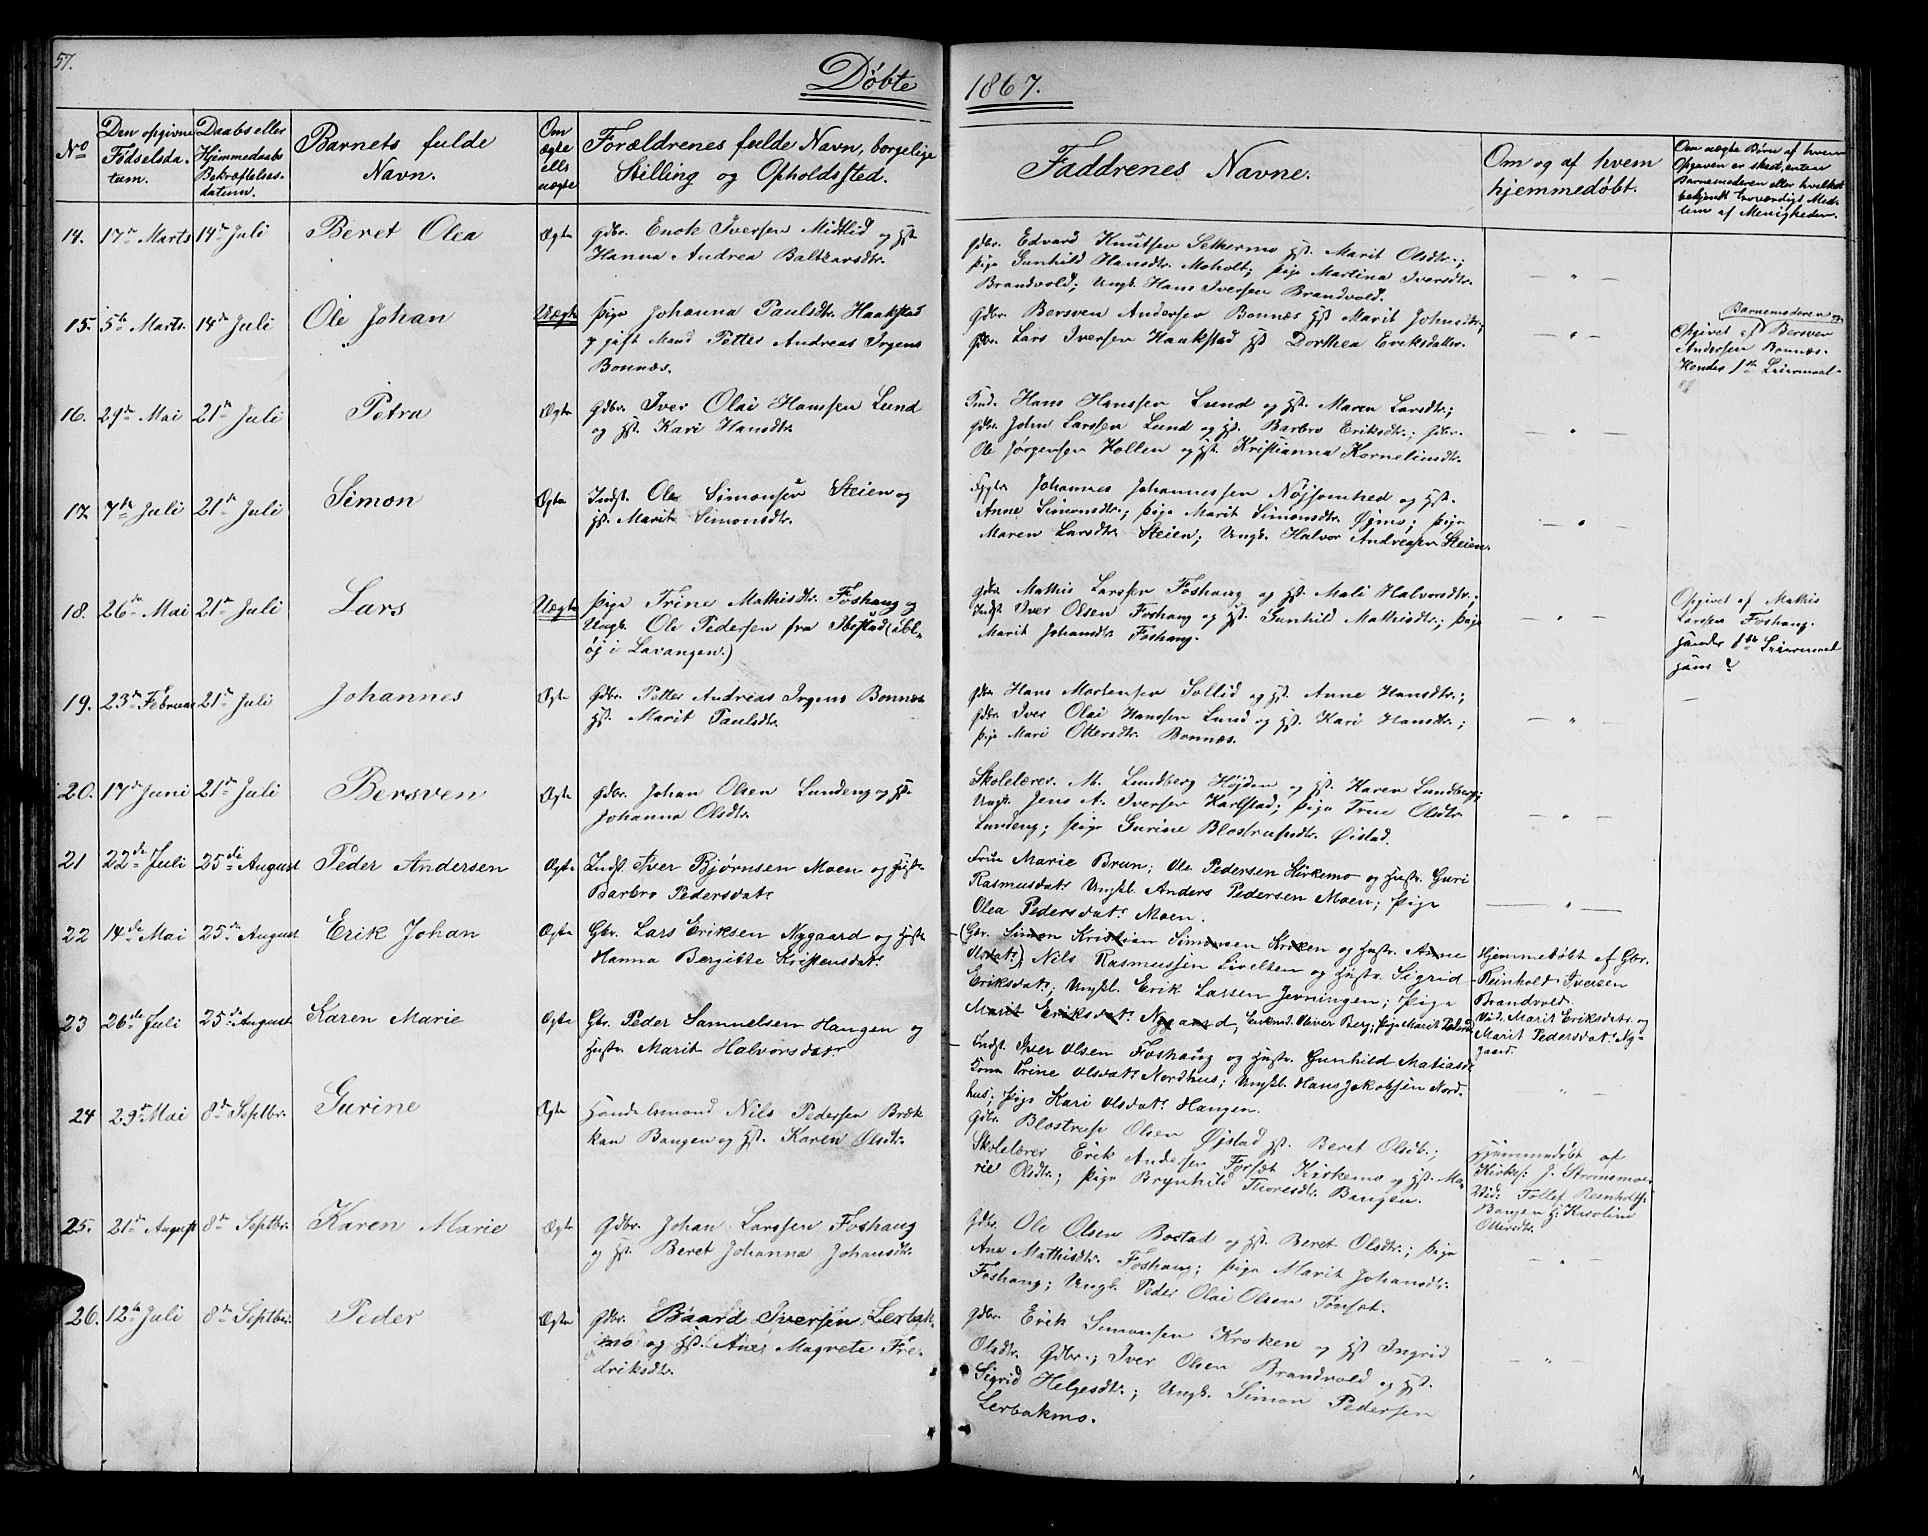 57.
Döbte 1867.
No
Den opgivne Födselsdatum.
Daabs eller Hjemmedaabs Bekræftelsesdatum.
Barnets fulde Navn.
Om ægte eller uægte
Forældrenes fulde Navn, borgelige Stilling og Opholdssted.
Faddrenes Navne.
Om og af hvem hjemmedöbt.
Om uægte Börn af hvem Opgaven er skeet, enten Barnemoderen eller hvilket bekjendt troværdigt Medlem af Menigheden.
14. 17de Marts 14de Juli Beret Olea Ægte
Gdbr. Enok Iversen Midtlid og Hst.
Hanna Andrea Baltzarsdtr.
Gdbr. Edvard Knutsen Setkermo Hst. Marit Olsdtr.;
Pige Gunhild Hansdtr. Moholt; Pige Martina Iversdtr.
Brandvold; Ungk. Hans Iversen Brandvold.
— " —
15. 5te Marts 14de Juli Ole Johan Uægte
Pige Johanna Paulsdtr. Haakstad
og gift Mand Petter Andreas Irgens
Bonnæs.
Gdbr. Bersven Andersen Bonnæs Hst Marit Johnsdtr.;
Gdbr. Lars Iversen Haakstad Hst. Dorthea Eriksdatter.
— " —
Barnemoderen og
Opgivet af Bersven
Andersen Bonnæs.
Hendes 1ste Leiermaal
16. 29de Mai 21de Juli Petra Ægte
Gdbr. Iver Olai Hanssen Lund
og Hst. Kari Hansdtr.
Ind. Hans Hanssen Lund og Hst. Maren Larsdtr.;
Gdbr. John Larssen Lund og Hst. Barbro Eriksdtr.; Gdbr.
Ole Jørgensen Hollen og Hst. Kristianna Korneliusdtr.
— " —
17. 7de Juli 21de Juli Simon Ægte
Indst. Ole Simonsen Steien og
Hst. Marit Simonsdtr.
Johannes Johannessen Nöjsomhed og Hst.
Anne Simonsdtr.; Pige Marit Simonsdtr. Øimo; Pige
Maren Larsdtr. Steien; Ungk. Halvor Andreasen Steien.
— " —
18. 26de Mai 21de Juli Lars Uægte
Pige Trine Mathisdtr. Foshaug og
Ungk. Ole Pedersen fra Ibestad (Sol-
øj i Lavangen.)
Gdbr. Mathis Larssen Foshaug og Hst. Mali Halvorsdtr.;
Indst. Iver Olsen Foshaug og Hst. Gunhild Mathisdtr.; Pige
Marit Johansdtr. Foshaug.
— " —
Opgivet af Mathis
Larssen Foshaug.
Hendes 1ste Leiermaal
hans ?
19. 23de Februar 21de Juli Johannes Ægte
Gdbr. Petter Andreas Irgens Bonnæs
Hst. Marit Paulsdtr.
Gdbr. Hans Mortensen Sollid og Hst. Anne Hansdtr.;
Gdbr. Iver Olai Hanssen Lund og Hst. Kari Hansdtr.;
Pige Mari Ottersdtr. Bonnæs.
— " —
—
20. 17de Juni 21de Juli Bersven Ægte
Gdbr. Johan Olsen Lundeng og Hst.
Johanna Olsdtr.
Skolelærer M. Lundberg Højden og Hst. Karen Lundberg;
Ungk. Jens A. Iversen Karlstad; Pige Trine Olsdtr.
Lundeng; Pige Gurine Blostrupsdtr. Øistad.
— " —
21 22de Juli 25de August Peder Andersen Ægte
Indst. Iver Bjørnsen Moen og Hustr.
Barbro Pedersdatr.
Frue Marie Brun; Ole Pedersen Kirkemo og Hustr. Guri
Rasmusdatr. Ungkl. Anders Pedersen Moen; Pige
Olea Pedersdatr. Moen.
— " —
22 14de Mai 25de August Erik Johan Ægte
Gbr. Lars Eriksen Nygaard og Hustr.
Hanna Bergitte Kristensdatr.
(Gbr. Simon Kristian Simonsen Kroken og Hustr. Anne
Olsdatr.) Nils Rasmussen Livelten og Hustr. Sigrid
Eriksdatr.; Ungkl. Erik Larsen Jevningen; Pige
Marit Eriksdatr. Nygaard, Enkemd. Oliver Berg; Pige Marit Pedersd.
Hjemmedöbt af Gbr.
Reinholdt Iversen
Brandvold.
Vid. Marit Eriksdatr. og
Marit Pedersdatr. Ny-
gaard.
23 26de Juli 25de August Karen Marie Ægte
Gbr. Peder Samuelsen Haugen og
Hustr. Marit Halvorsdatr.
Indst. Iver Olsen Foshaug og Hustr. Gunhild Matiasd.
Kone Trine Olsdatr. Nordhus; Ungkl. Hans Jakobsen Nord-
hus; Pige Kari Olsdatr. Haugen.
" —
24 29de Mai 8de Septbr. Gurine Ægte
Handelsmand Nils Pedersen Bræk-
kan Bangen og Hst. Karen Olsdtr.
Gdbr. Blostrup Olsen Øjstad Hst. Beret Olsdtr.;
Skolelærer Erik Andersen Forsæt Kirkemo og Hst. Ma-
rie Olsdtr.; Pige Brynhild Thoresdtr. Bangen.
Hjemmedöbt af
Kirkes. J. Strømsmoe.
Vid: Tollef Reinholts.
Bangen og Karoline
Ottersdtr.
25. 21de August 8de Septbr. Karen Marie Ægte
Gdbr. Johan Larssen Foshaug
og Hst. Beret Johanna Johansdtr.
Gdbr. Ole Olsen Bostad og Hst. Beret Olsdtr.; Pige
Ane Mathisdtr. Foshaug; Pige Marit Johansdtr.
Foshaug; Ungk. Peder Olai Olsen Tønset.
— " —
26. 12te Juli 8de Septbr. Peder Ægte
Gdbr. Baard Iversen Lerbak-
mo og Hst. Anne Magrete Fre-
driksdtr.
Gdbr. Erik Simonsen Kroken og Hst Ingrid
Olsdtr. Gdbr.; Iver Olsen Brandvold og Hst.
Sigrid Helgesdtr.; Ungk. Simon Pedersen
Lerbakmo.
— " —